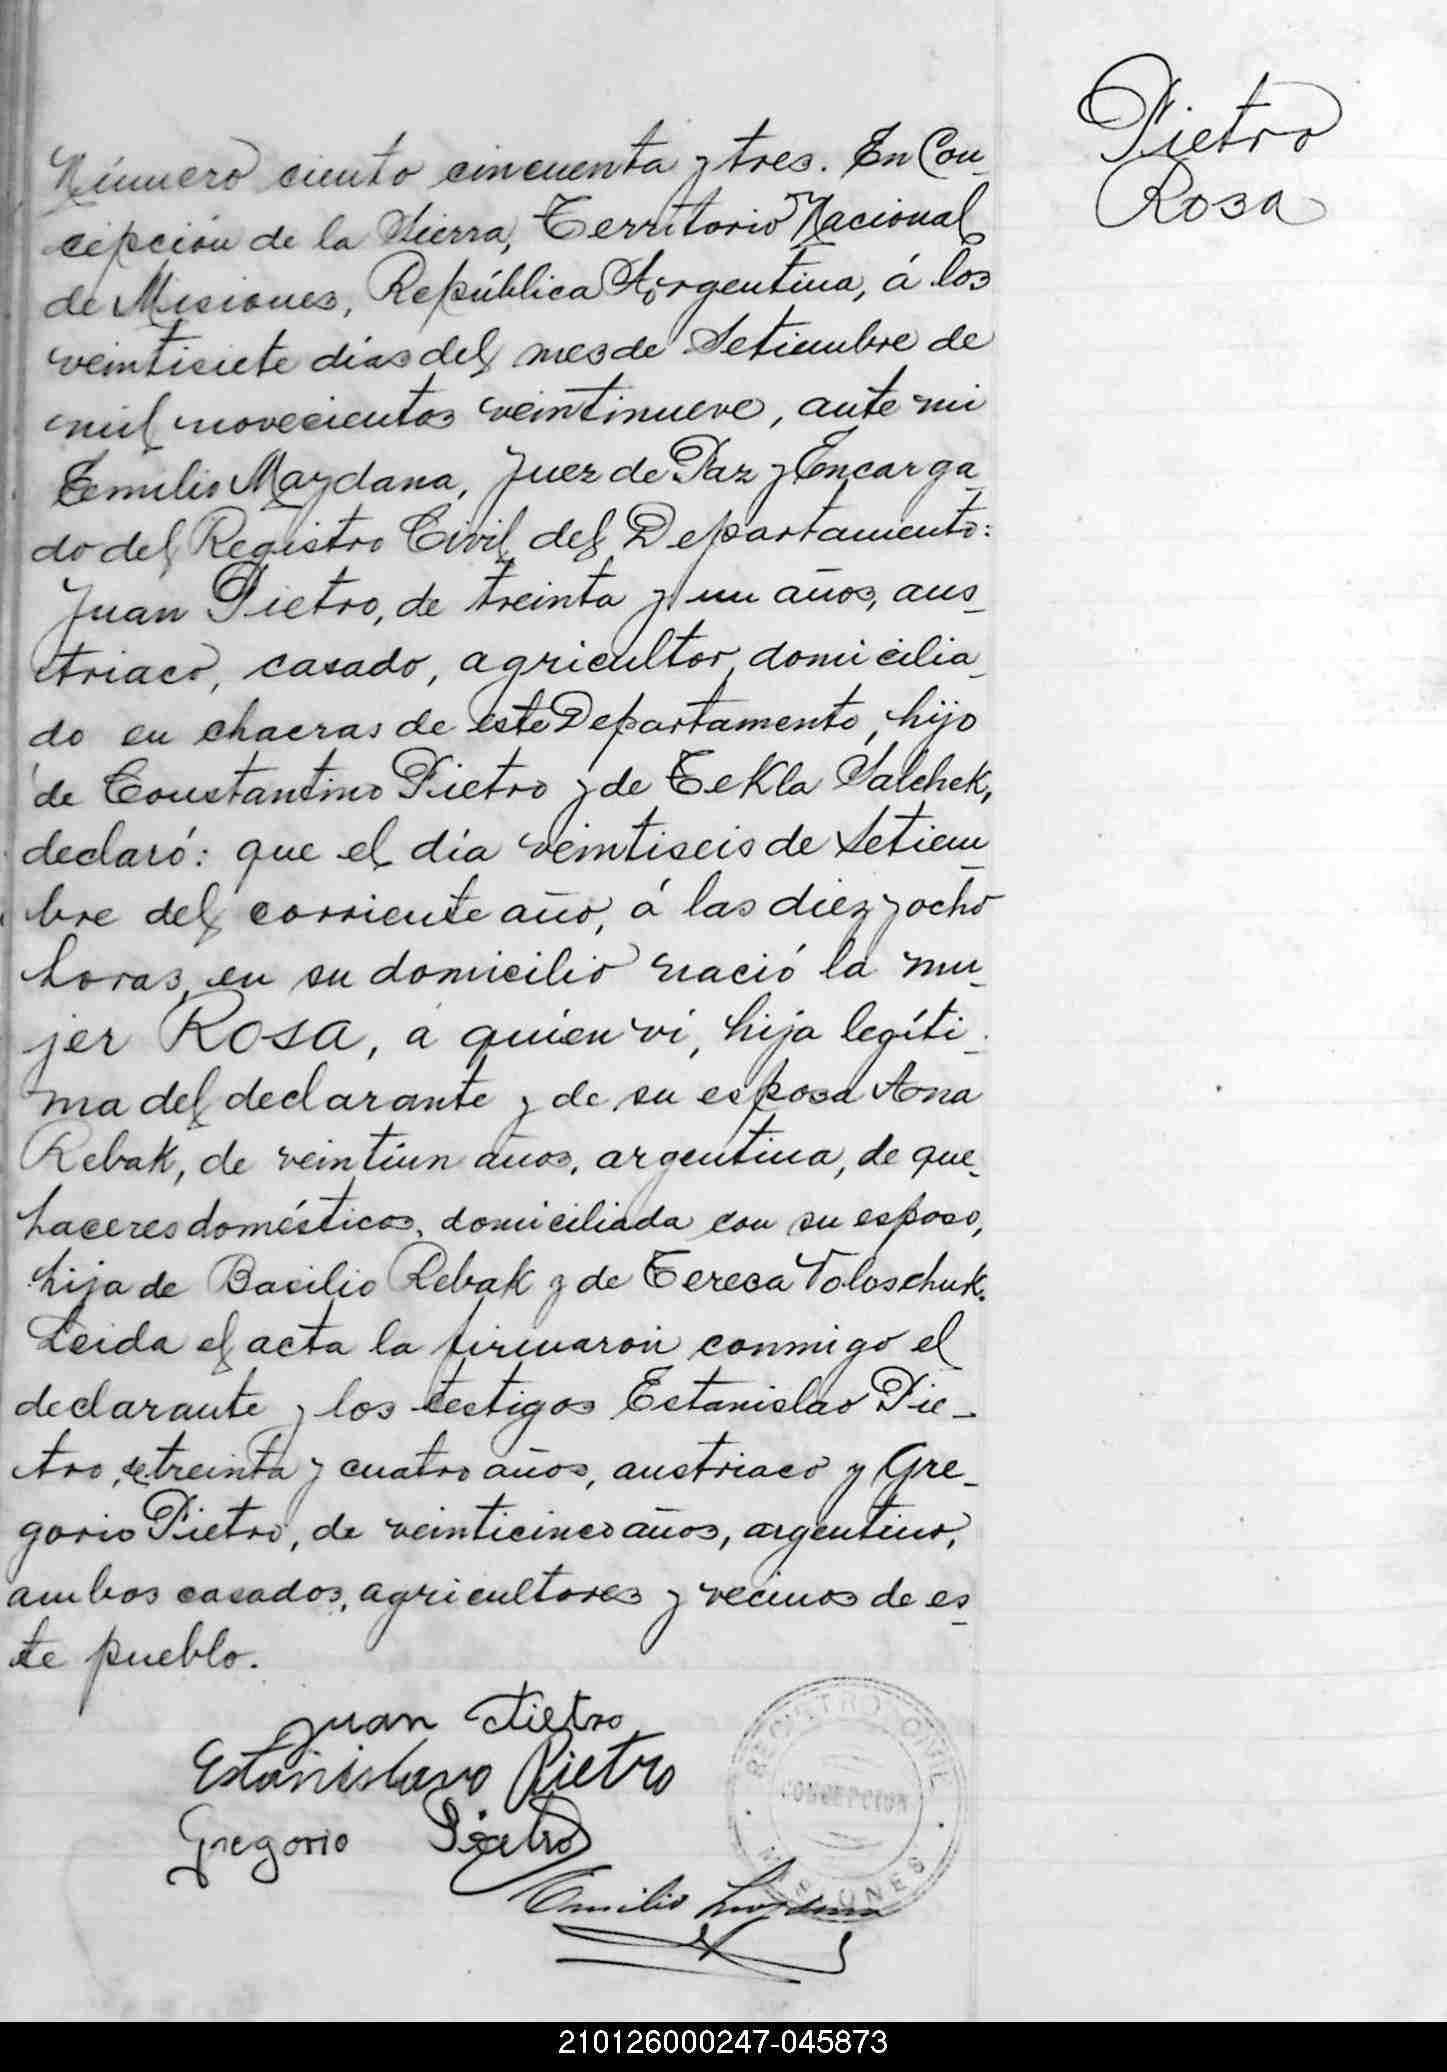 Pietro
Rosa
Número ciento cincuenta y tres. En Con-
cepción de la Sierra, Territorio Nacional
de Misiones, República Argentina, á los
veintisiete días del mes de Setiembre de
mil novecientos veintinueve, ante mi
Emilio Maydana, Juez de Paz y Encarga-
do del Registro Civil del Departamento:
Juan Pietro, de treinta y un años, aus-
triaco, casado, agricultor, domicilia-
do en chacras de este Departamento, hijo
de Constantino Pietro y de Tekla Salchek,
declaró: que el día veintiseis de Setiem-
bre del corriente año, á las diez y ocho
horas, en su domicilio nació la mu-
jer ROSA, á quien vi, hija legíti-
ma del declarante y de su esposa Ana
Rebak, de veintiun años, argentina, de que-
haceres domésticos, domiciliada con su esposo,
hija de Basilio Rebak y de Teresa Voloschuk.
Leida el acta la firmaron conmigo el
declarante y los testigos Estanislao Pie-
tro, de treinta y cuatro años, austriaco y Gre-
gorio Pietro, de veinticinco años, argentino,
ambos casados, agricultores y vecinos de es-
te pueblo.
Juan Pietro
Estanislavo Pietro
Gregorio Pietro
Emilio Maydana
REGISTRO CIVIL
CONCEPCION
MISIONES
210126000247-045873